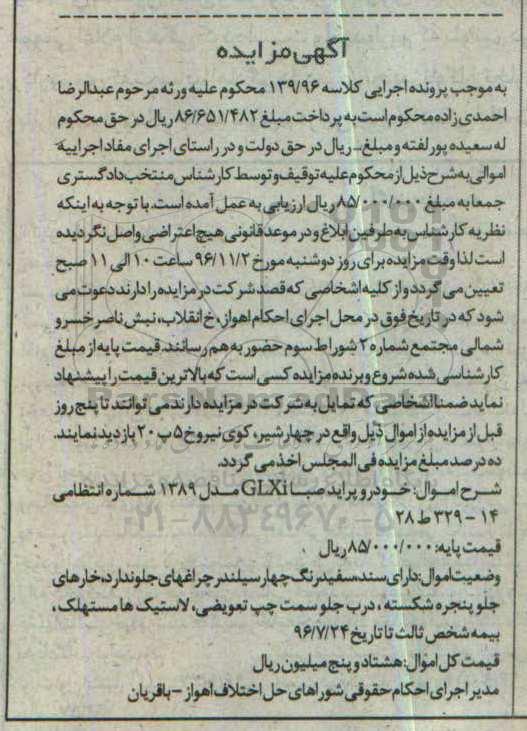 آگهی مزایده
به موجب پرونده اجرایی کلاسه ۱۳۹/۹۶ محکوم علیه ورثه مرحوم عبدالرضا
احمدی زاده محکوم است به پرداخت مبلغ ۸۶/۶۵۱/۴۸۲ ریال در حق محکوم
له سعیده پور لفته و مبلغ - ریال در حق دولت و در راستای اجرای مفاد اجراییه
اموالی به شرح ذیل از محکوم علیه توقیف و توسط کارشناس منتخب دادگستری
جمعا به مبلغ ۸۵/۰۰۰/۰۰۰ ریال ارزیابی به عمل آمده است. با توجه به اینکه
نظریه کارشناس به طرفین ابلاغ و در موعد قانونی هیچ اعتراضی واصل نگردیده
است لذا وقت مزایده برای روز دوشنبه مورخ ۹۶/۱۱/۲ ساعت ۱۰ الی ۱۱ صبح
تعیین می گردد و از کلیه اشخاصی که قصد شرکت در مزایده را دارند دعوت می
شود که در تاریخ فوق در محل اجرای احکام اهواز، خ انقلاب، نبش ناصر خسرو
شمالی مجتمع شماره ۲ شورا ط سوم حضور به هم رسانند. قیمت پایه از مبلغ
کارشناسی شده شروع و برنده مزایده کسی است که بالاترین قیمت را پیشنهاد
نماید ضمنا اشخاصی که تمایل به شرکت در مزایده دارند می توانند تا پنج روز
قبل از مزایده از اموال ذیل واقع در چهارشیر، کوی نیرو خ ۵ پ ۲۰ بازدید نمایند.
ده درصد مبلغ مزایده فی المجلس اخذ می گردد.
شرح اموال: خودرو پراید صبا GLXi مدل ۱۳۸۹ شماره انتظامی
۱۴ - ۳۲۹ ط ۲۸
قیمت پایه: ۸۵/۰۰۰/۰۰۰ ریال
وضعیت اموال: دارای سند، سفید رنگ چهار سیلندر چراغهای جلو ندارد، خارهای
جلو پنجره شکسته، درب جلو سمت چپ تعویضی، لاستیک ها مستهلک،
بیمه شخص ثالث تا تاریخ ۹۶/۷/۲۴
قیمت کل اموال: هشتاد و پنج میلیون ریال
مدیر اجرای احکام حقوقی شوراهای حل اختلاف اهواز - باقریان
۰۲۱-۸۸۳۴۹۶۷۰-۵